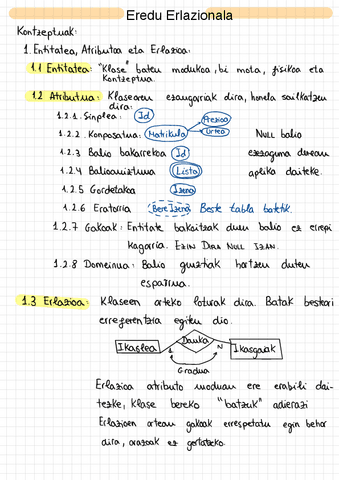 Eredu Erlazionala
Kontzeptuak:
1. Entitatea, Atributoa eta Erlazioa:
1.1 Entitatea: "Klase" baten modukoa, bi mota, fisikoa eta
kontzeptua.
1.2 Atributua: Klasearen ezaugarriak dira, honela sailkatzen
dira:
1.2.1. Sinplea: Id
Prezioa
1.2.2. Konposatua: Matrikula
Urtea
NULL balio
1.2.3 Balio bakarrekoa Id
ezezaguna denean
1.2.4 Balioanitzuna Lista
aplika daiteke.
1.2.5 Gordetakoa Izena
1.2.6 Eratorria Bere Izena Beste tabla batetik.
1.2.7 Gakoak: Entitate bakoitzak duen balio ez errepi
kagarria. EZIN DIRA NULL IZAN.
1.2.8 Domeinua: Balio guztiak hartzen duten
esparrua.
1.3 Erlazioa: Klaseen arteko loturak dira. Batak besteari
erreferentzia egiten dio.
Ikaslea 1 Dauka N Ikasgaiak
Gradua
Erlazioa atributo moduan ere erabili dai-
tezke, klase bereko "batzuk" adierazi
Erlazioen artean gakoak errespetatu egin behar
dira, arazoak ez gertatzeko.